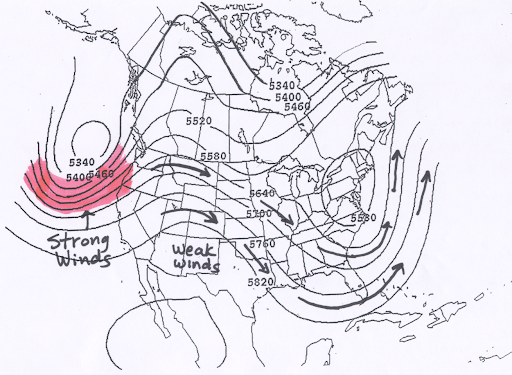 5340
5400
5460
5520
5580
5340
5400 5460
5640
5700
5580
Strong
Winds
Weak
winds
5760
5820